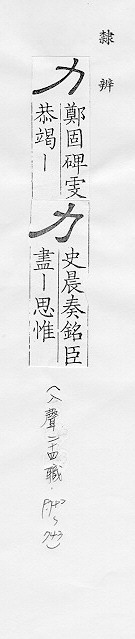 隸辨
力 鄭固碑雯
恭竭｜
力 史晨奏銘臣
盡｜思惟
(入聲二十四職. P742~743)